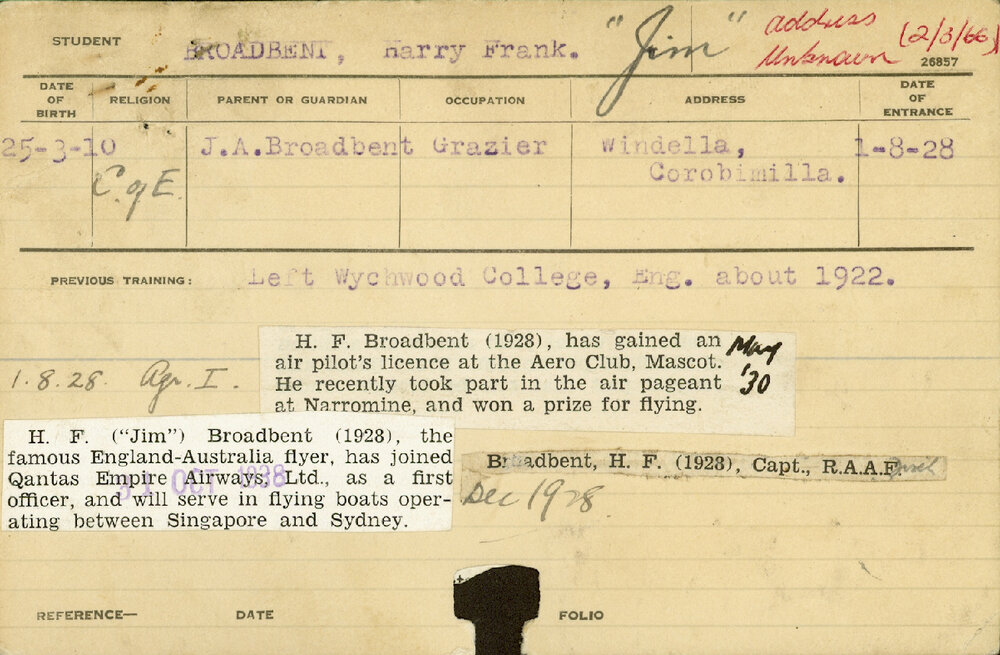 STUDENT BROADBENT, Harry Frank. "Jim" address
Unknown (2/3/66)
26857
DATE OF BIRTH RELIGION PARENT OR GUARDIAN OCCUPATION ADDRESS DATE OF ENTRANCE
25-3-10 C. of E. J.A.Broadbent Grazier Windella, 1-8-28
Corobimilla.
PREVIOUS TRAINING: Left Wychwood College, Eng. about 1922.
H. F. Broadbent (1928), has gained an
air pilot's licence at the Aero Club, Mascot.
He recently took part in the air pageant
at Narromine, and won a prize for flying.
May '30
1.8.28. Agr. I.
H. F. ("Jim") Broadbent (1928), the
famous England-Australia flyer, has joined
Qantas Empire Airways, Ltd., as a first
officer, and will serve in flying boats oper-
ating between Singapore and Sydney.
31 OCT 1938
Broadbent, H. F. (1928), Capt., R.A.A.F.
Dec 1928.
REFERENCE— DATE FOLIO